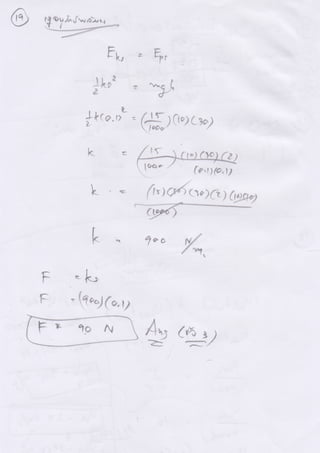 19
Eks = Eps
1/2 ks² = mgh
1/2 k(0.1)² = (15/1000)(10)(30)
k = (15/1000)(10)(30)(2)/(0.1)(0.1)
k = (15)(10)(30)(2)(10)(10)/(1000)
k = 900 N/m.
F = ks
F = (900)(0.1)
F = 90 N Ans (ข้อ 3)